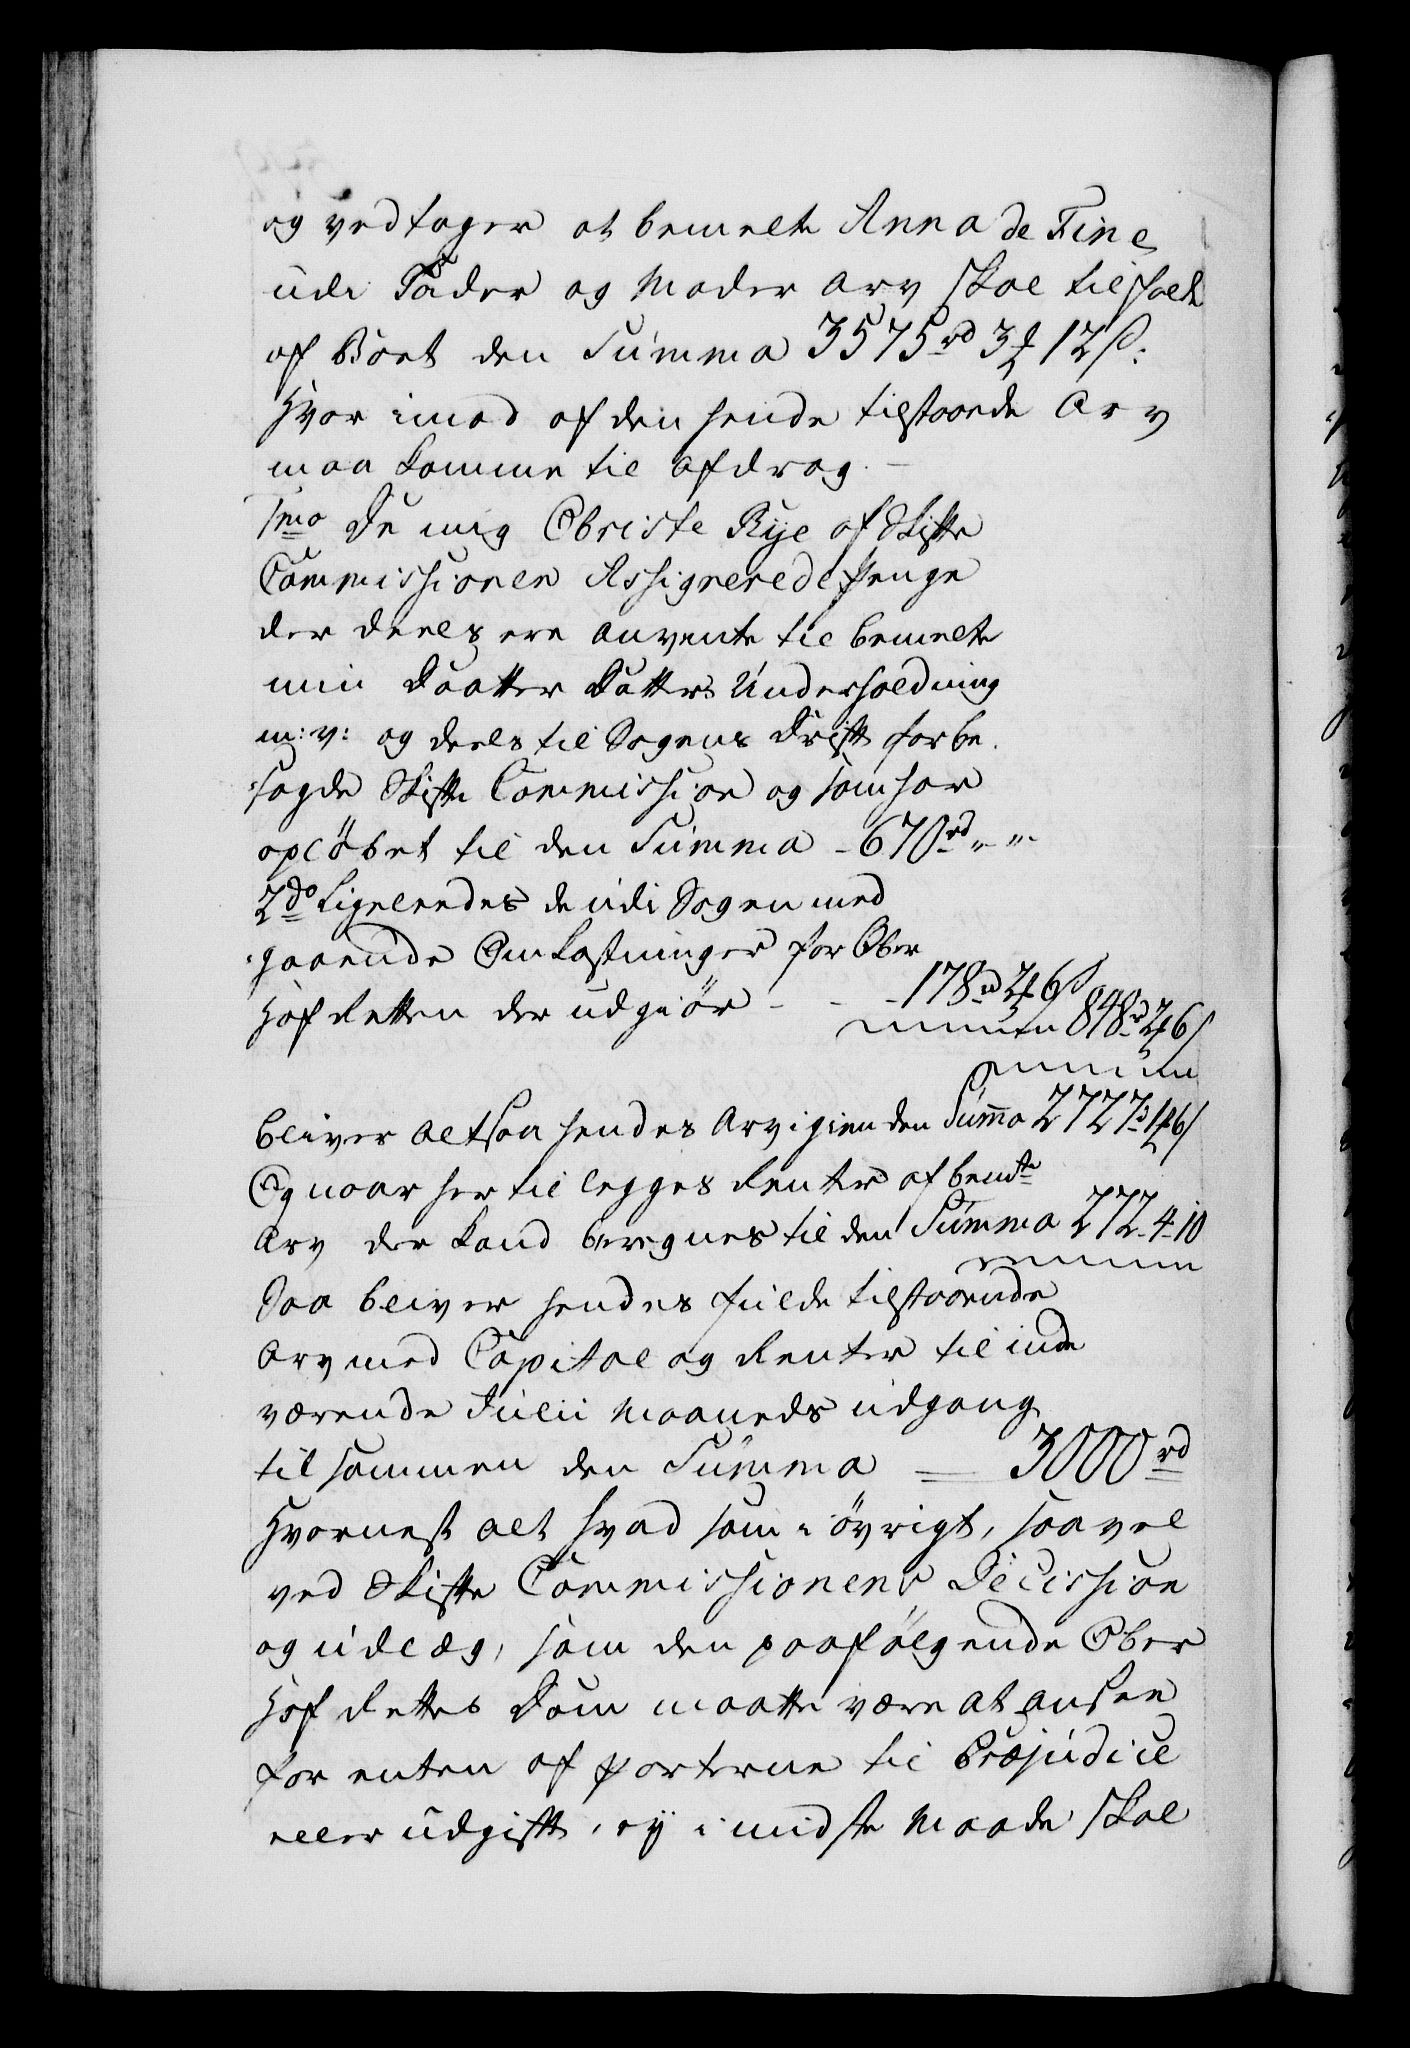 og vedtager at bemelte Anna de Fine
udi Fader og Moder Arv skal tilfalde
af Boet den Summa 3575 rd 3 ₰ 12 s:
Hvor imod af den hende tilstaaende Arv
maa komme til afdrag. —
1mo De mig Obriste Rye af Skifte
Commissionen Assignerede Penge
der deels ere anvente til bemelte
min Daatter Datters Underholdning
m: v: og deels til Sagens Drift for be
sagde Skifte Commission og som har
opløbet til den Summa - 670 rd „ - „ -
2do Ligeleedes de udi Sagen med
gaaende Omkostninger for Ober
Hof Retten der udgiør - - - 178 rd 2 ₰ 6 s
848 rd 2 ₰ 6 s
bliver altsaa hendes Arv igien den Summa 2727 rd 1 ₰ 6 s
Og naar her til legges Renter af bemte
Arv der kand beregnes til den Summa 272 - 4 - 10
Saa bliver hendes fulde tilstaaende
Arv med Capital og Renter til inde
værende Julii Maaneds udgang
tilsammen den Summa = 3000 rd
Hvornest alt hvad som i øvrigt, saavel
ved Skifte Commissionens Decission
og udlæg, som den paafølgende Ober
Hof Rettes Dom maatte være at ansee
for enten af Parterne til Præjudice
eller udgift, ey i midste Maade skal